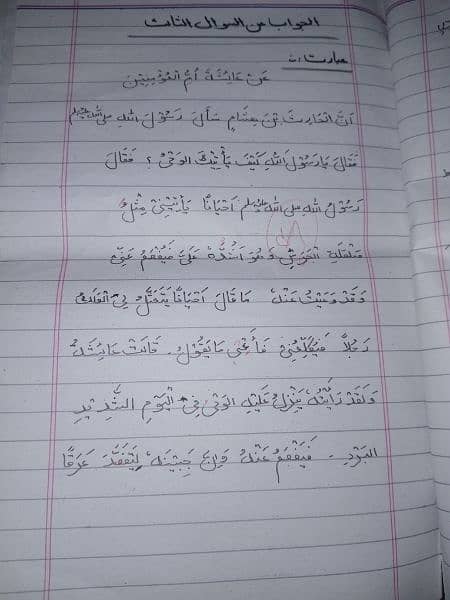 الجواب عن السوال الثالث
عبارت:
عَنْ عَائِشَةَ اُمِّ الْمُؤْمِنِيْنَ
اَنَّ الْحَارِثَ بْنَ هِشَامٍ سَأَلَ رَسُوْلَ اللهِ صلى الله عليه وسلم
فَقَالَ يَا رَسُوْلَ اللهِ كَيْفَ يَأْتِيْكَ الْوَحْىُ ؟ فَقَالَ
رَسُوْلُ اللهِ صلى الله عليه وسلم اَحْيَانًا يَأْتِيْنِىْ مِثْلُ
صَلْصَلَةِ الْجَرَسِ وَهُوَ اَشُدُّهُ عَلَىَّ فَيُفْصَمُ عَنِّىْ
وَقَدْ وَعَيْتُ عَنْهُ مَا قَالَ اَحْيَانًا يَتَمَثَّلُ لِىَ الْمَلَكُ
رَجُلًا فَيُكَلِّمُنِىْ فَأَعِىْ مَا يَقُوْلُ. قَالَتْ عَائِشَةُ
وَلَقَدْ رَأَيْتُهُ يَنْزِلُ عَلَيْهِ الْوَحْىُ فِى الْيَوْمِ الشَّدِيْدِ
الْبَرْدِ - فَيَفْصِمُ عَنْهُ وَاِنَّ جَبِيْنَهُ لَيَتَفَصَّدُ عَرَقًا